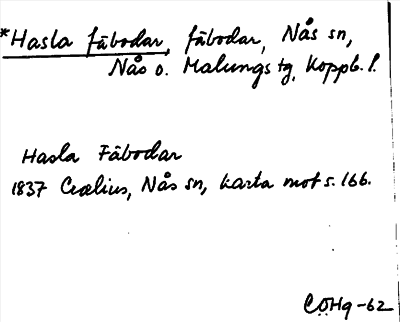 *Hasla fäbodar, fäbodar, Nås sn,
Nås o. Malungs tg, Koppb. l.
Hasla Fäbodar
1837 Crælius, Nås sn, karta mot s. 166.
CÖHg -62